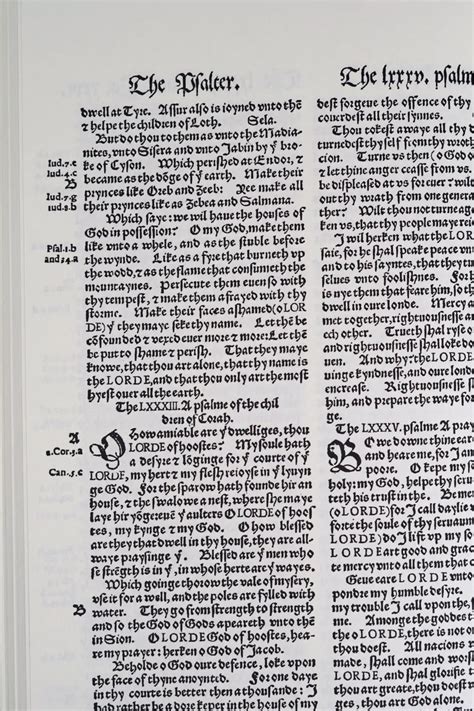 The Psalter.
dwell at Tyre. Assur also is ioyned vnto thē
& helpe the children of Loth. Sela.
But do thou to them as vnto the Madia-
nites, vnto Sisera and vnto Jabin by ẏ bro-
Iud.7.e
ke of Cyson. Which perished at Endor, &
Iud.4.c
became as the dōge of ẏ earth. Make their
B
prynces like Oreb and Zeeb: Yee make all
Iud.7.g
their prynces like as Zebea and Salmana.
Iud.8.b
Which saye: we wil haue the houses of
God in possession: O my God, make them
Psal.1.b
like vnto a whele, and as the stuble before
and 34.a
the wynde. Like as a fyre that burneth vp
the wodd, & as the flame that consumeth the
mountaynes. Persecute them euen so with
thy tempest, & make them afrayed with thy
storme. Make their faces ashamed (o LOR
DE) ẏ they maye seke thy name. Let thē be
cōfounded & vexed euer more & more: Let thē
be put to shame & perish. That they maye
knowe, that thou art alone, that thy name is
the LORDE, and that thou only art the most
hyest ouer all the earth.
The LXXXIII. A psalme of the chil
dren of Corah.
A
How amiable are ẏ dwelliges, thou
2.Cor.5.a
LORDE of hoostes? My soule hath
a desyre & lōginge for ẏ courte of ẏ
Can.5.c
LORDE, my hert & my flesh reioyse in ẏ lyuyn
ge God. For the sparow hath founde hir an
house, & the swalowe a nest, where she maye
laye hir yōge: euē ẏ aulters O LORDE of hoos
tes, my kynge & my God. O how blessed
are they that dwell in thy house, they are all-
waye praysinge ẏ. Blessed are ẏ men who
se strēgth is in ẏ, in whose herte are ẏ wayes.
Which goinge thorow the vale of mysery,
vse it for a well, and the poles are fylled with
B
water. They go from strength to strength
and so the God of Gods apeareth vnto thē
in Sion. O LORDE God of hoostes, hea-
re my prayer: herken o God of Jacob.
Beholde o God oure defence, loke vpon
the face of thyne anoynted. For one daye
in thy courts is better then a thousande: I
The lxxxv. psalme
dest forgeue the offence of thy
couerdest all their synnes.
Thou tokest awaye all thy
turnedest thy self from thy wroth
cion. Turne vs then (o God o
& let thine anger ceasse from vs.
be displeased at vs for euer? wilt
out thy wrath from one genera
ther? Wilt thou not turne aga
ken vs, that thy people maye reio
I will herken what the LORDE
saie, for he shal speake peace vn
and to his sayntes, that they tur
selues vnto foolishnes. For h
is nye them that feare him, so th
dwell in oure londe. Mercy a
met together, rightuousnesse a
other. Trueth shal ryse o
and rightuousnesse shal
uen. And why? the LORDE
uinge kyndnesse, and oure londe
encrease. Rightuousnesse sh
him, and prepare the waye for
ge.
The LXXXV. psalme A pray
Bowe downe thine eare
and heare me, for I am
poore. O kepe my so
holy: my God, helpe thy serua
teth his trust in the. Be mer
(o LORDE) for I call daylie v
forte the soule of thy seruaunt
LORDE) do I lift vp my so
LORDE art good and gracio
te mercy vnto all them that
Geue eare LORDE vnto
pondre my humble desyre.
my trouble I call vpon the,
me. Amonge the goddes t
the (o LORDE,) there is not o
thou doest. All nacions w
made, shall come and worsh
LORDE, and shal glorifie t
thou art greate, thou doest w
thou art God alone.